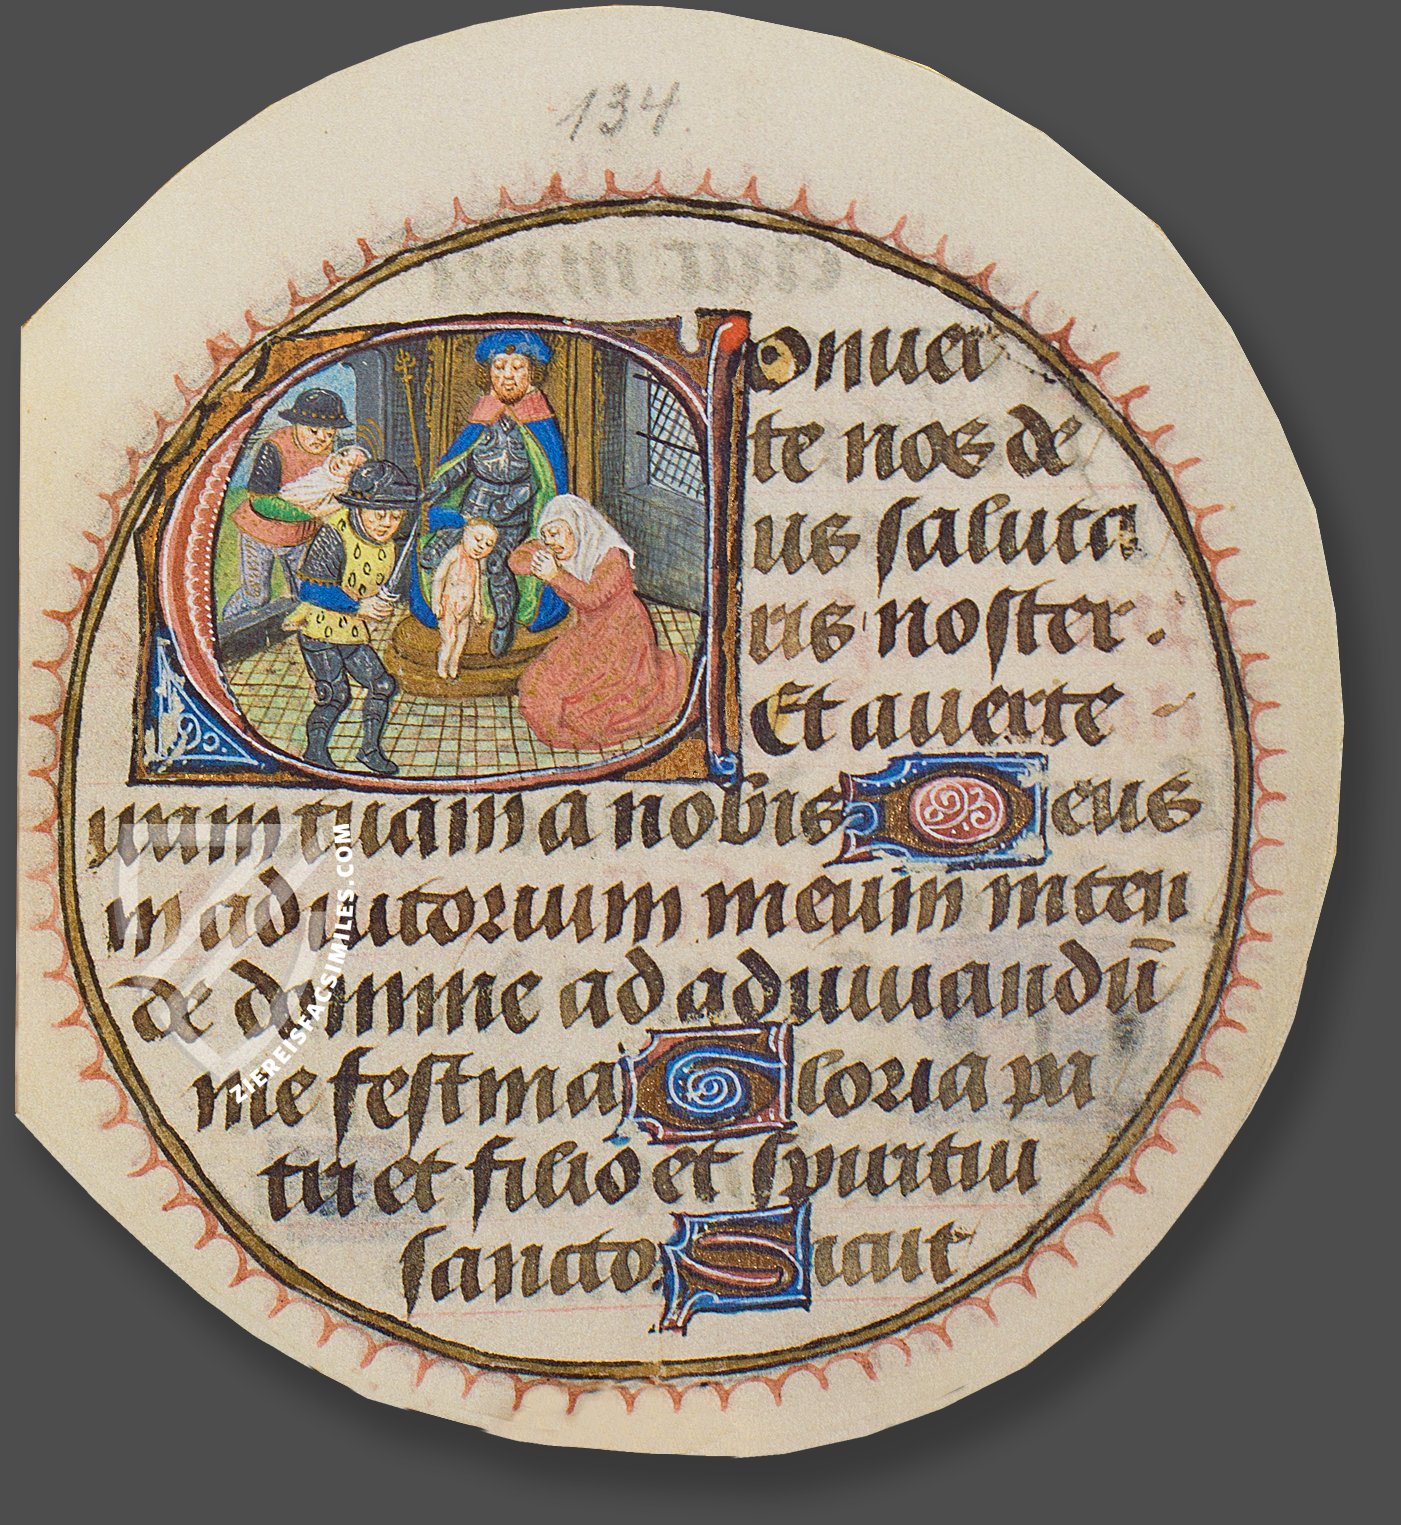 134.
Conuer
te nos de
us saluta
ris noster.
Et auerte
iram tuam a nobis Deus
in adiutorium meum inten
de domine ad adiuuandū
me festina Gloria pa
tri et filio et spiritui
sancto. Sicut
ZIEREISFACSIMILES.COM